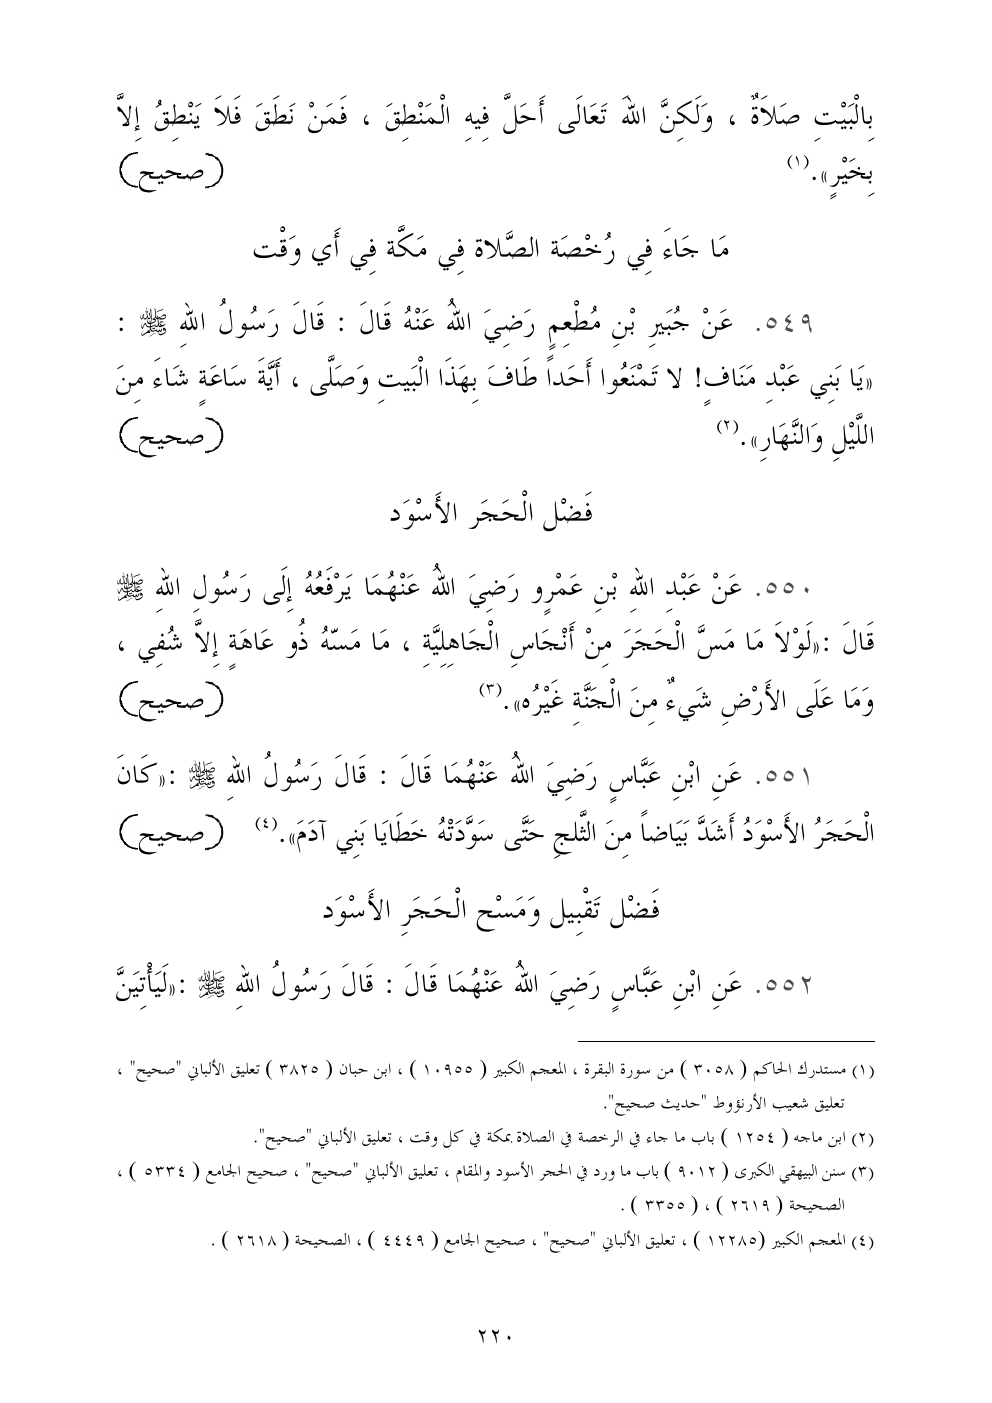 بِالْبَيْتِ صَلَاَةٌ ، وَلَكِنَّ اللهَ تَعَالَى أَحَلَّ فِيهِ الْمَنْطِقَ ، فَمَنْ نَطَقَ فَلاَ يَنْطِقُ إِلاَّ
بِخَيْرٍ».(١) (صحيح)
مَا جَاءَ فِي رُخْصَة الصَّلاة فِي مَكَّة فِي أَي وَقْت
٥٤٩. عَنْ جُبَيرِ بْنِ مُطْعِمٍ رَضِيَ اللهُ عَنْهُ قَالَ : قَالَ رَسُولُ اللهِ ﷺ :
«يَا بَنِي عَبْدِ مَنَافٍ! لا تَمْنَعُوا أَحَداً طَافَ بِهَذَا الْبَيتِ وَصَلَّى ، أَيَّةَ سَاعَةٍ شَاءَ مِنَ
اللَّيْلِ وَالنَّهَارِ».(٢) (صحيح)
فَضْل الْحَجَر الأَسْوَد
٥٥٠. عَنْ عَبْدِ اللهِ بْنِ عَمْرٍو رَضِيَ اللهُ عَنْهُمَا يَرْفَعُهُ إِلَى رَسُولِ اللهِ ﷺ
قَالَ :«لَوْلاَ مَا مَسَّ الْحَجَرَ مِنْ أَنْجَاسِ الْجَاهِلِيَّةِ ، مَا مَسّهُ ذُو عَاهَةٍ إِلاَّ شُفِي ،
وَمَا عَلَى الأَرْضِ شَيءٌ مِنَ الْجَنَّةِ غَيْرُه».(٣) (صحيح)
٥٥١. عَنِ ابْنِ عَبَّاسٍ رَضِيَ اللهُ عَنْهُمَا قَالَ : قَالَ رَسُولُ اللهِ ﷺ :«كَانَ
الْحَجَرُ الأَسْوَدُ أَشَدَّ بَيَاضاً مِنَ الثَّلجِ حَتَّى سَوَّدَتْهُ خَطَايَا بَنِي آدَمَ».(٤) (صحيح)
فَضْل تَقْبِيل وَمَسْح الْحَجَرِ الأَسْوَد
٥٥٢. عَنِ ابْنِ عَبَّاسٍ رَضِيَ اللهُ عَنْهُمَا قَالَ : قَالَ رَسُولُ اللهِ ﷺ :«لَيَأْتِيَنَّ
(١) مستدرك الحاكم ( ٣٠٥٨ ) من سورة البقرة ، المعجم الكبير ( ١٠٩٥٥ ) ، ابن حبان ( ٣٨٢٥ ) تعليق الألباني "صحيح" ،
تعليق شعيب الأرنؤوط "حديث صحيح".
(٢) ابن ماجه ( ١٢٥٤ ) باب ما جاء في الرخصة في الصلاة بمكة في كل وقت ، تعليق الألباني "صحيح".
(٣) سنن البيهقي الكبرى ( ٩٠١٢ ) باب ما ورد في الحجر الأسود والمقام ، تعليق الألباني "صحيح" ، صحيح الجامع ( ٥٣٣٤ ) ،
الصحيحة ( ٢٦١٩ ) ، ( ٣٣٥٥ ) .
(٤) المعجم الكبير (١٢٢٨٥ ) ، تعليق الألباني "صحيح" ، صحيح الجامع ( ٤٤٤٩ ) ، الصحيحة ( ٢٦١٨ ) .
٢٢٠